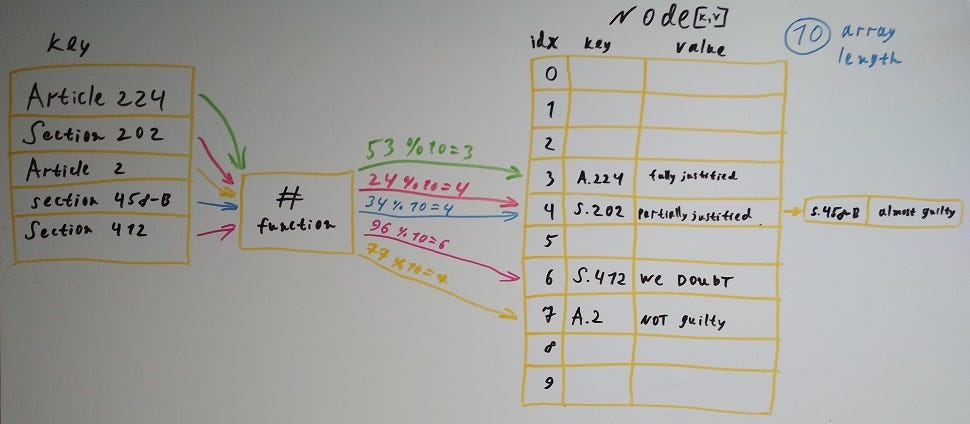 key
Article 224
Section 202
Article 2
section 458-B
Section 412
#
function
53 % 10 = 3
24 % 10 = 4
34 % 10 = 4
96 % 10 = 6
77 % 10 = 7
Node[k,v]
idx key value
0
1
2
3 A.224 fully justified
4 S.202 partially justified
5
6 S.412 we DoubT
7 A.2 NOT guilty
8
9
S.458-B almost guilty
10 array
length